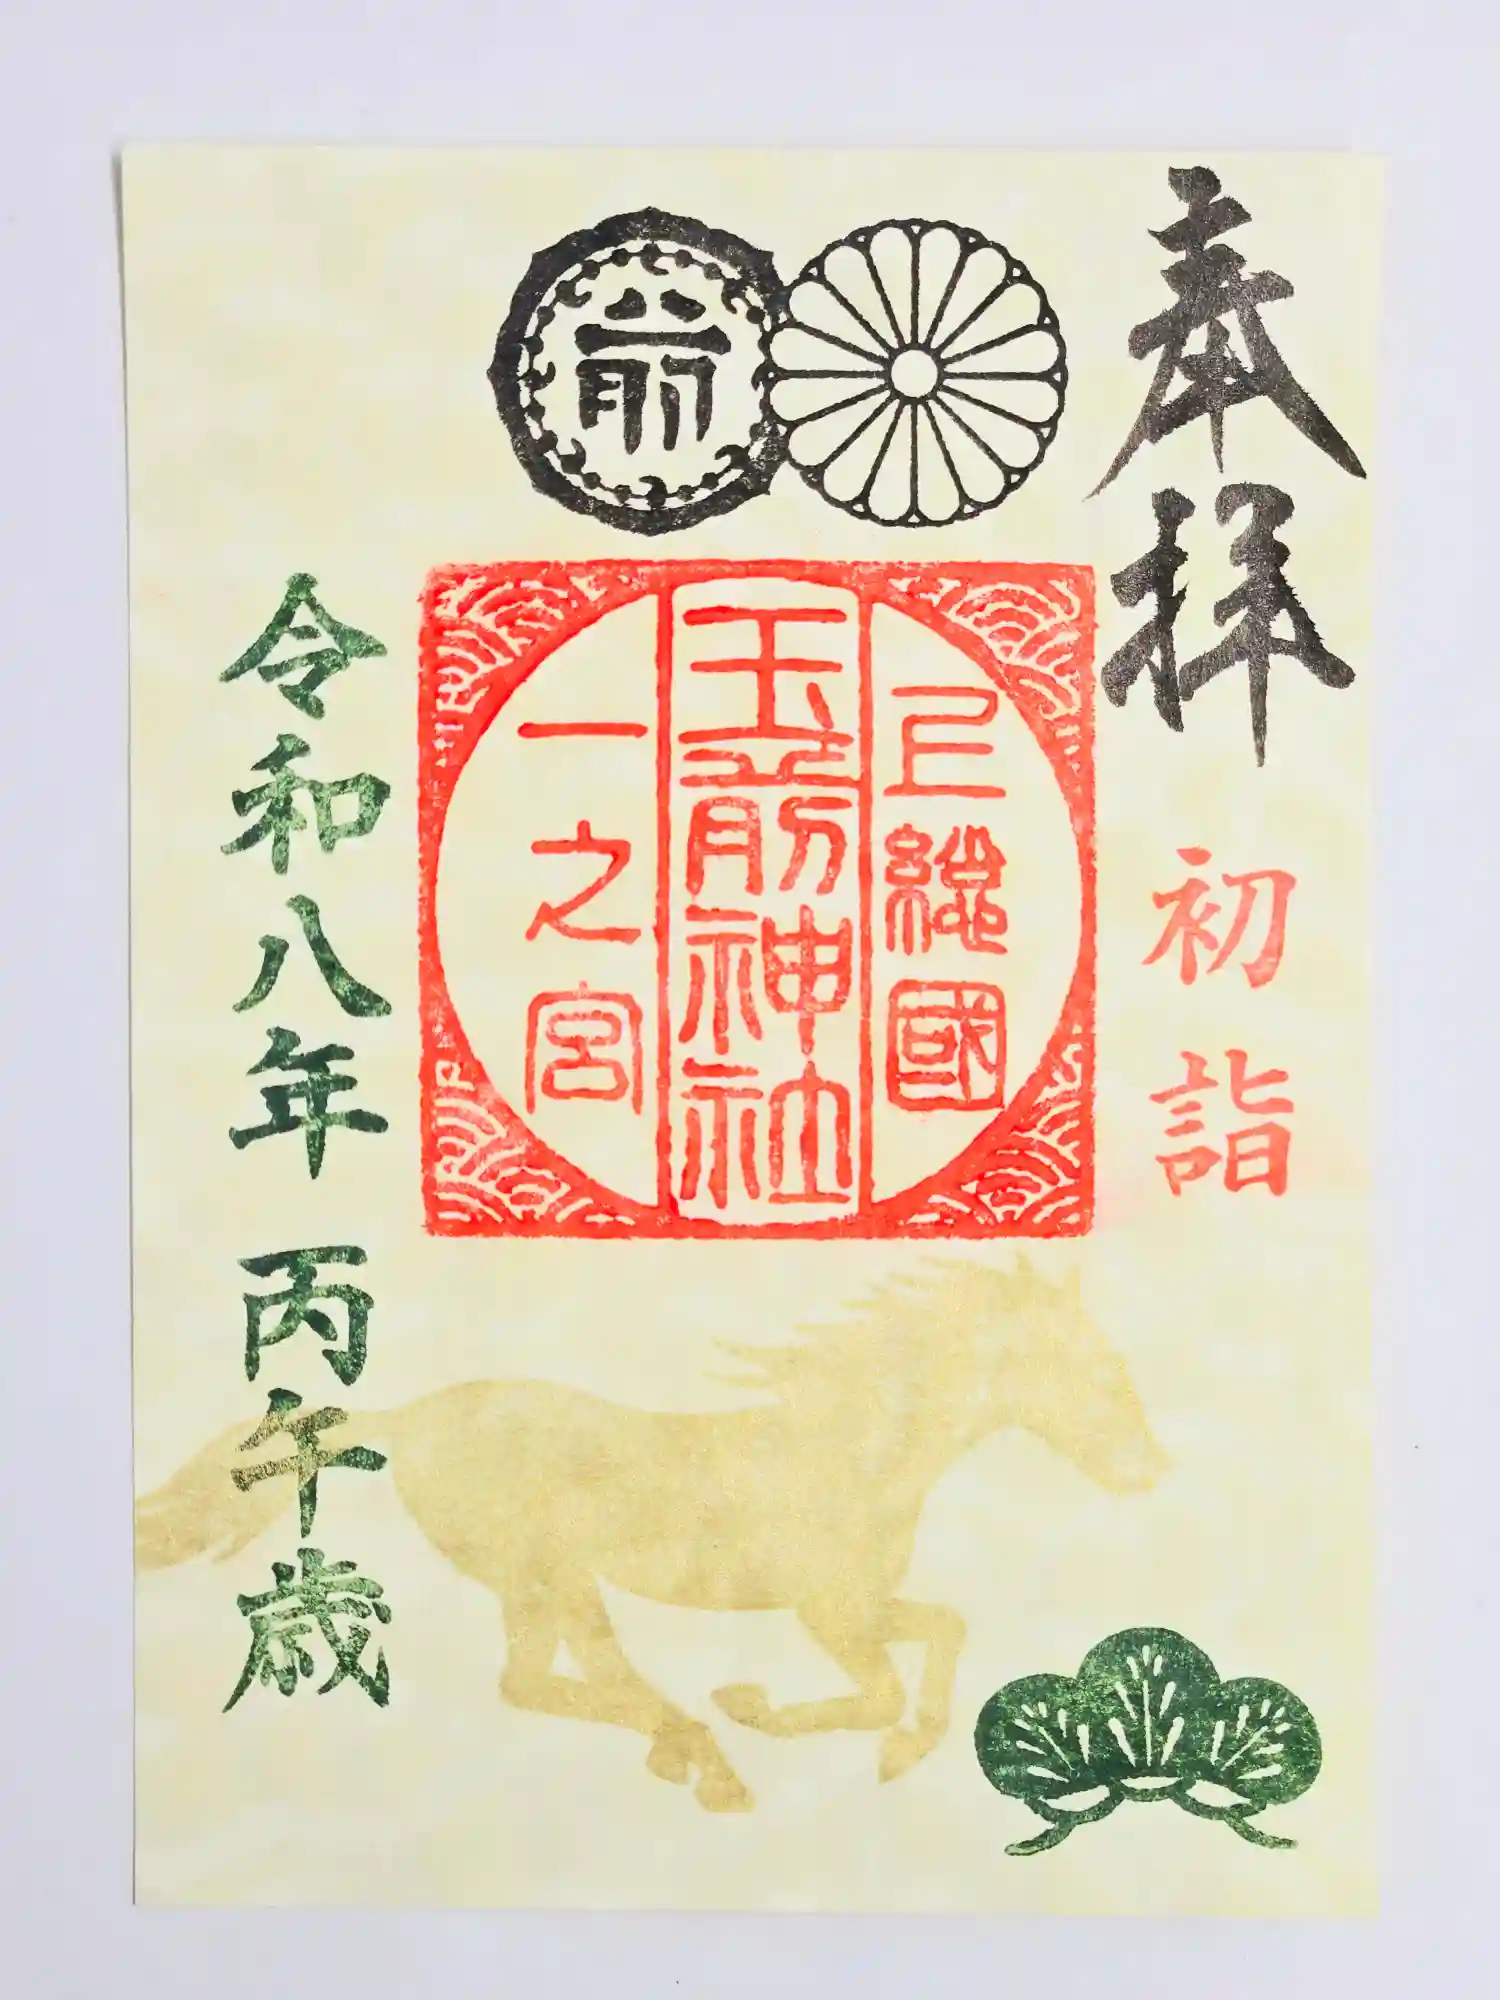 奉拝
初詣
前
上總國
玉前神社
一之宮
令和八年 丙午歳